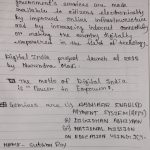 government's services are made
available to citizens electronically
by improved online infrastructure
and by increasing internet connectivity
or making the country digitally
empowered in the field of technology.
Digital India project launch at 2015
by Narendra Modi.
The motto of Digital India
is "Power to Empower".
Services are:-
AADHAAR ENABLED
PAYMENT SYSTEM (AEPS)
DIGISHALA
NATIONAL MISSION
ON EDUCATION USING ICT.
NAME: